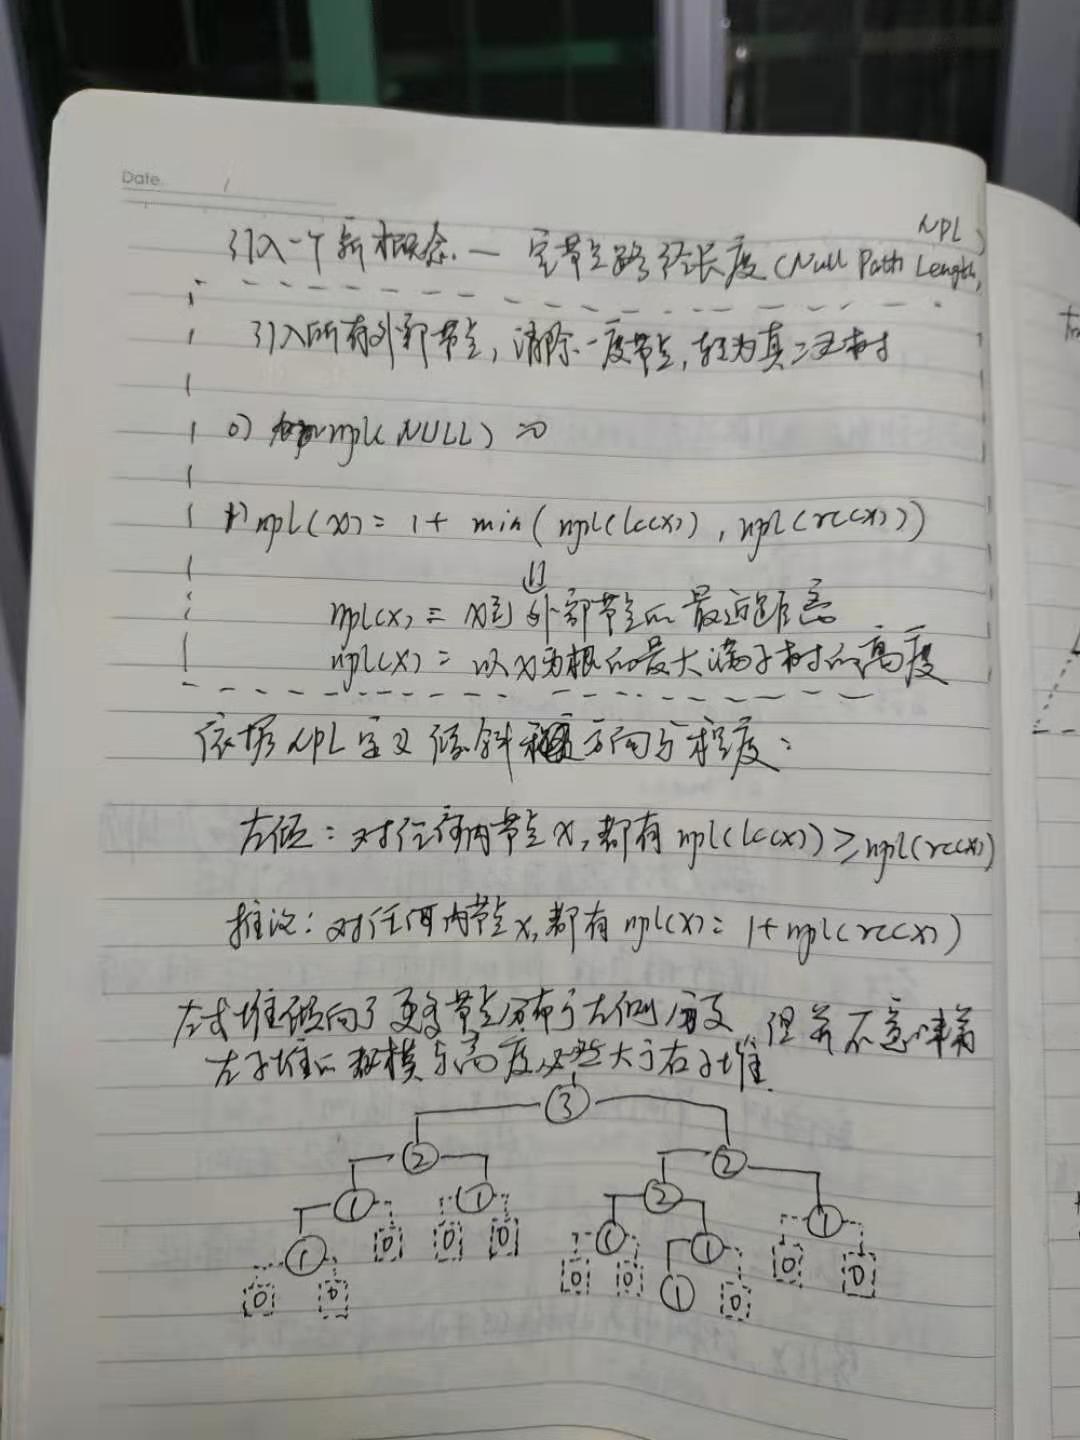 Date
NPL
引入一个新概念 — 空节点路径长度 (Null Path Length,
引入所有外部节点, 消除一度节点, 转为真二叉树
0) npl(NULL) = 0
1) npl(x) = 1 + min( npl(lc(x)) , npl(rc(x)) )
⇓
npl(x) = x到外部节点的最近距离
npl(x) = 以x为根的最大满子树的高度
依据NPL定义倾斜方向与程度:
左倾: 对任何内节点x, 都有 npl(lc(x)) ≥ npl(rc(x))
推论: 对任何内节点x, 都有 npl(x) = 1 + npl(rc(x))
左式堆倾向于更多节点分布于左侧分支, 但并不意味着
左子堆的规模与高度必然大于右子堆.
3
2 2
1 1 2 1
1 0 0 0 1 1 0 0
0 0 0 0 1 0